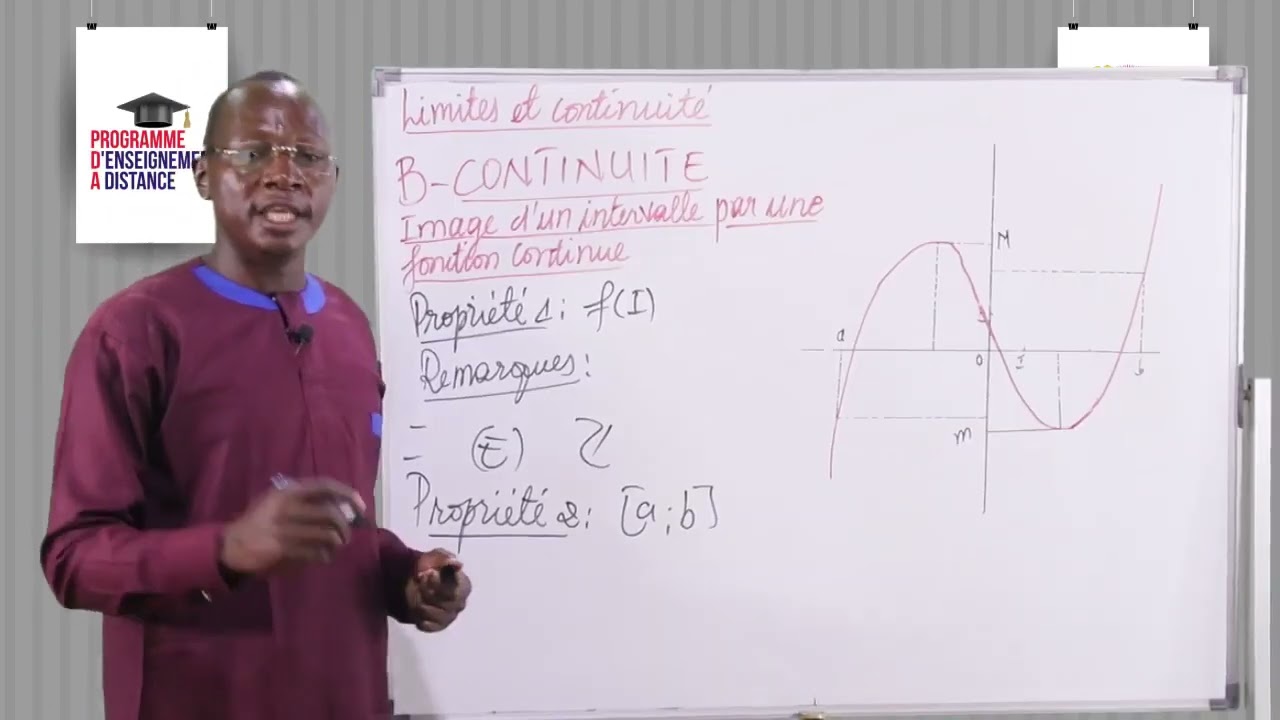 PROGRAMME
D'ENSEIGNEME
A DISTANCE
Limites et continuité
B-CONTINUITE
Image d'un intervalle par une
fonction continue
Propriété 1: f(I)
Remarques:
Propriété 2: [a;b]
M
a
o
m